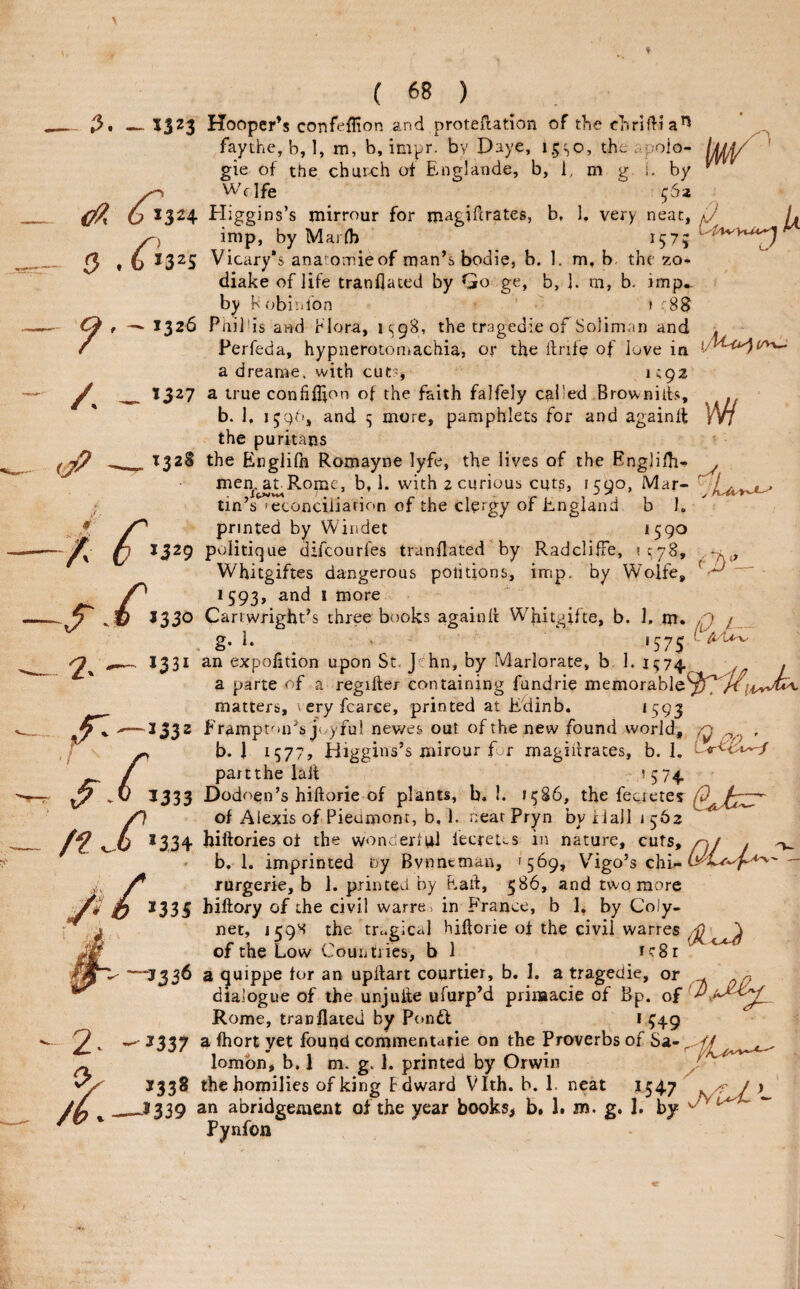 ( 68 )
3. — 1323 Hooper's confeſſion and proteſtation of the chriſtian
faythe, b, l, m, b, impr. by Daye, 1550, the apolo-
gie of the church of Englande, b, l, m g l. by
Wolfe 562
6 1324 Higgins's mirrour for magiſtrates, b. l. very neat,
imp, by Marſh 1575
3 . 6 1325 Vicary's anatomie of man's bodie, b. l. m. b. the zo-
diake of life tranſlated by Goge, b, l. m, b. imp.
by Robinſon 1588
9 , — 1326 Phillis and Flora, 1598, the tragedie of Soliman and
Perſeda, hypnerotomachia, or the ſtrife of love in
a dreame, with cuts, 1592
1. — 1327 a true confiſſion of the faith falſely called Browniſts,
b. l. 1596, and 5 more, pamphlets for and againſt
the puritans
— 1328 the Engliſh Romayne lyfe, the lives of the Engliſh-
men at Rome, b, l. with 2 curious cuts, 1590, Mar-
tin's reconciliation of the clergy of England b l.
printed by Windet 1590
1. 6 1329 politique diſcourſes tranſlated by Radcliffe, 1578,
Whitgiftes dangerous poſitions, imp. by Wolfe,
1593, and 1 more
5 . 6 1330 Cartwright's three books againſt Whitgifte, b. l. m.
g. l. 1575
2. — 1331 an expoſition upon St. John, by Marlorate, b l. 1574
a parte of a regiſter containing ſundrie memorable
matters, very ſcarce, printed at Edinb. 1593
5. — 1332 Frampton's joyful newes out of the new found world,
b. l 1577, Higgins's mirour for magiſtrates, b. l.
part the laſt 1574
5 . 6 1333 Dodoen's hiſtorie of plants, b. l. 1586, the ſecretes
of Alexis of Piedmont, b. l. neat Pryn by Hall 1562
12 . 6 1334 hiſtories of the wonderful ſecretes in nature, cuts,
b. l. imprinted by Bynneman, 1569, Vigo's chi-
rurgerie, b l. printed by Eaſt, 586, and two more
1. 6 1335 hiſtory of the civil warres in France, b l. by Coly-
net, 1598 the tragical hiſtorie of the civil warres
of the Low Countries, b l 1581
—1336 a quippe for an upſtart courtier, b. l. a tragedie, or
dialogue of the unjuſte uſurp'd primacie of Bp. of
Rome, tranſlated by Ponct 1549
2. — 1337 a ſhort yet found commentarie on the Proverbs of Sa-
lomon, b. l m. g. l. printed by Orwin
1338 the homilies of king Edward VIth. b. l. neat 1547
16. —1339 an abridgement of the year books, b. l. m. g. l. by
Pynſon